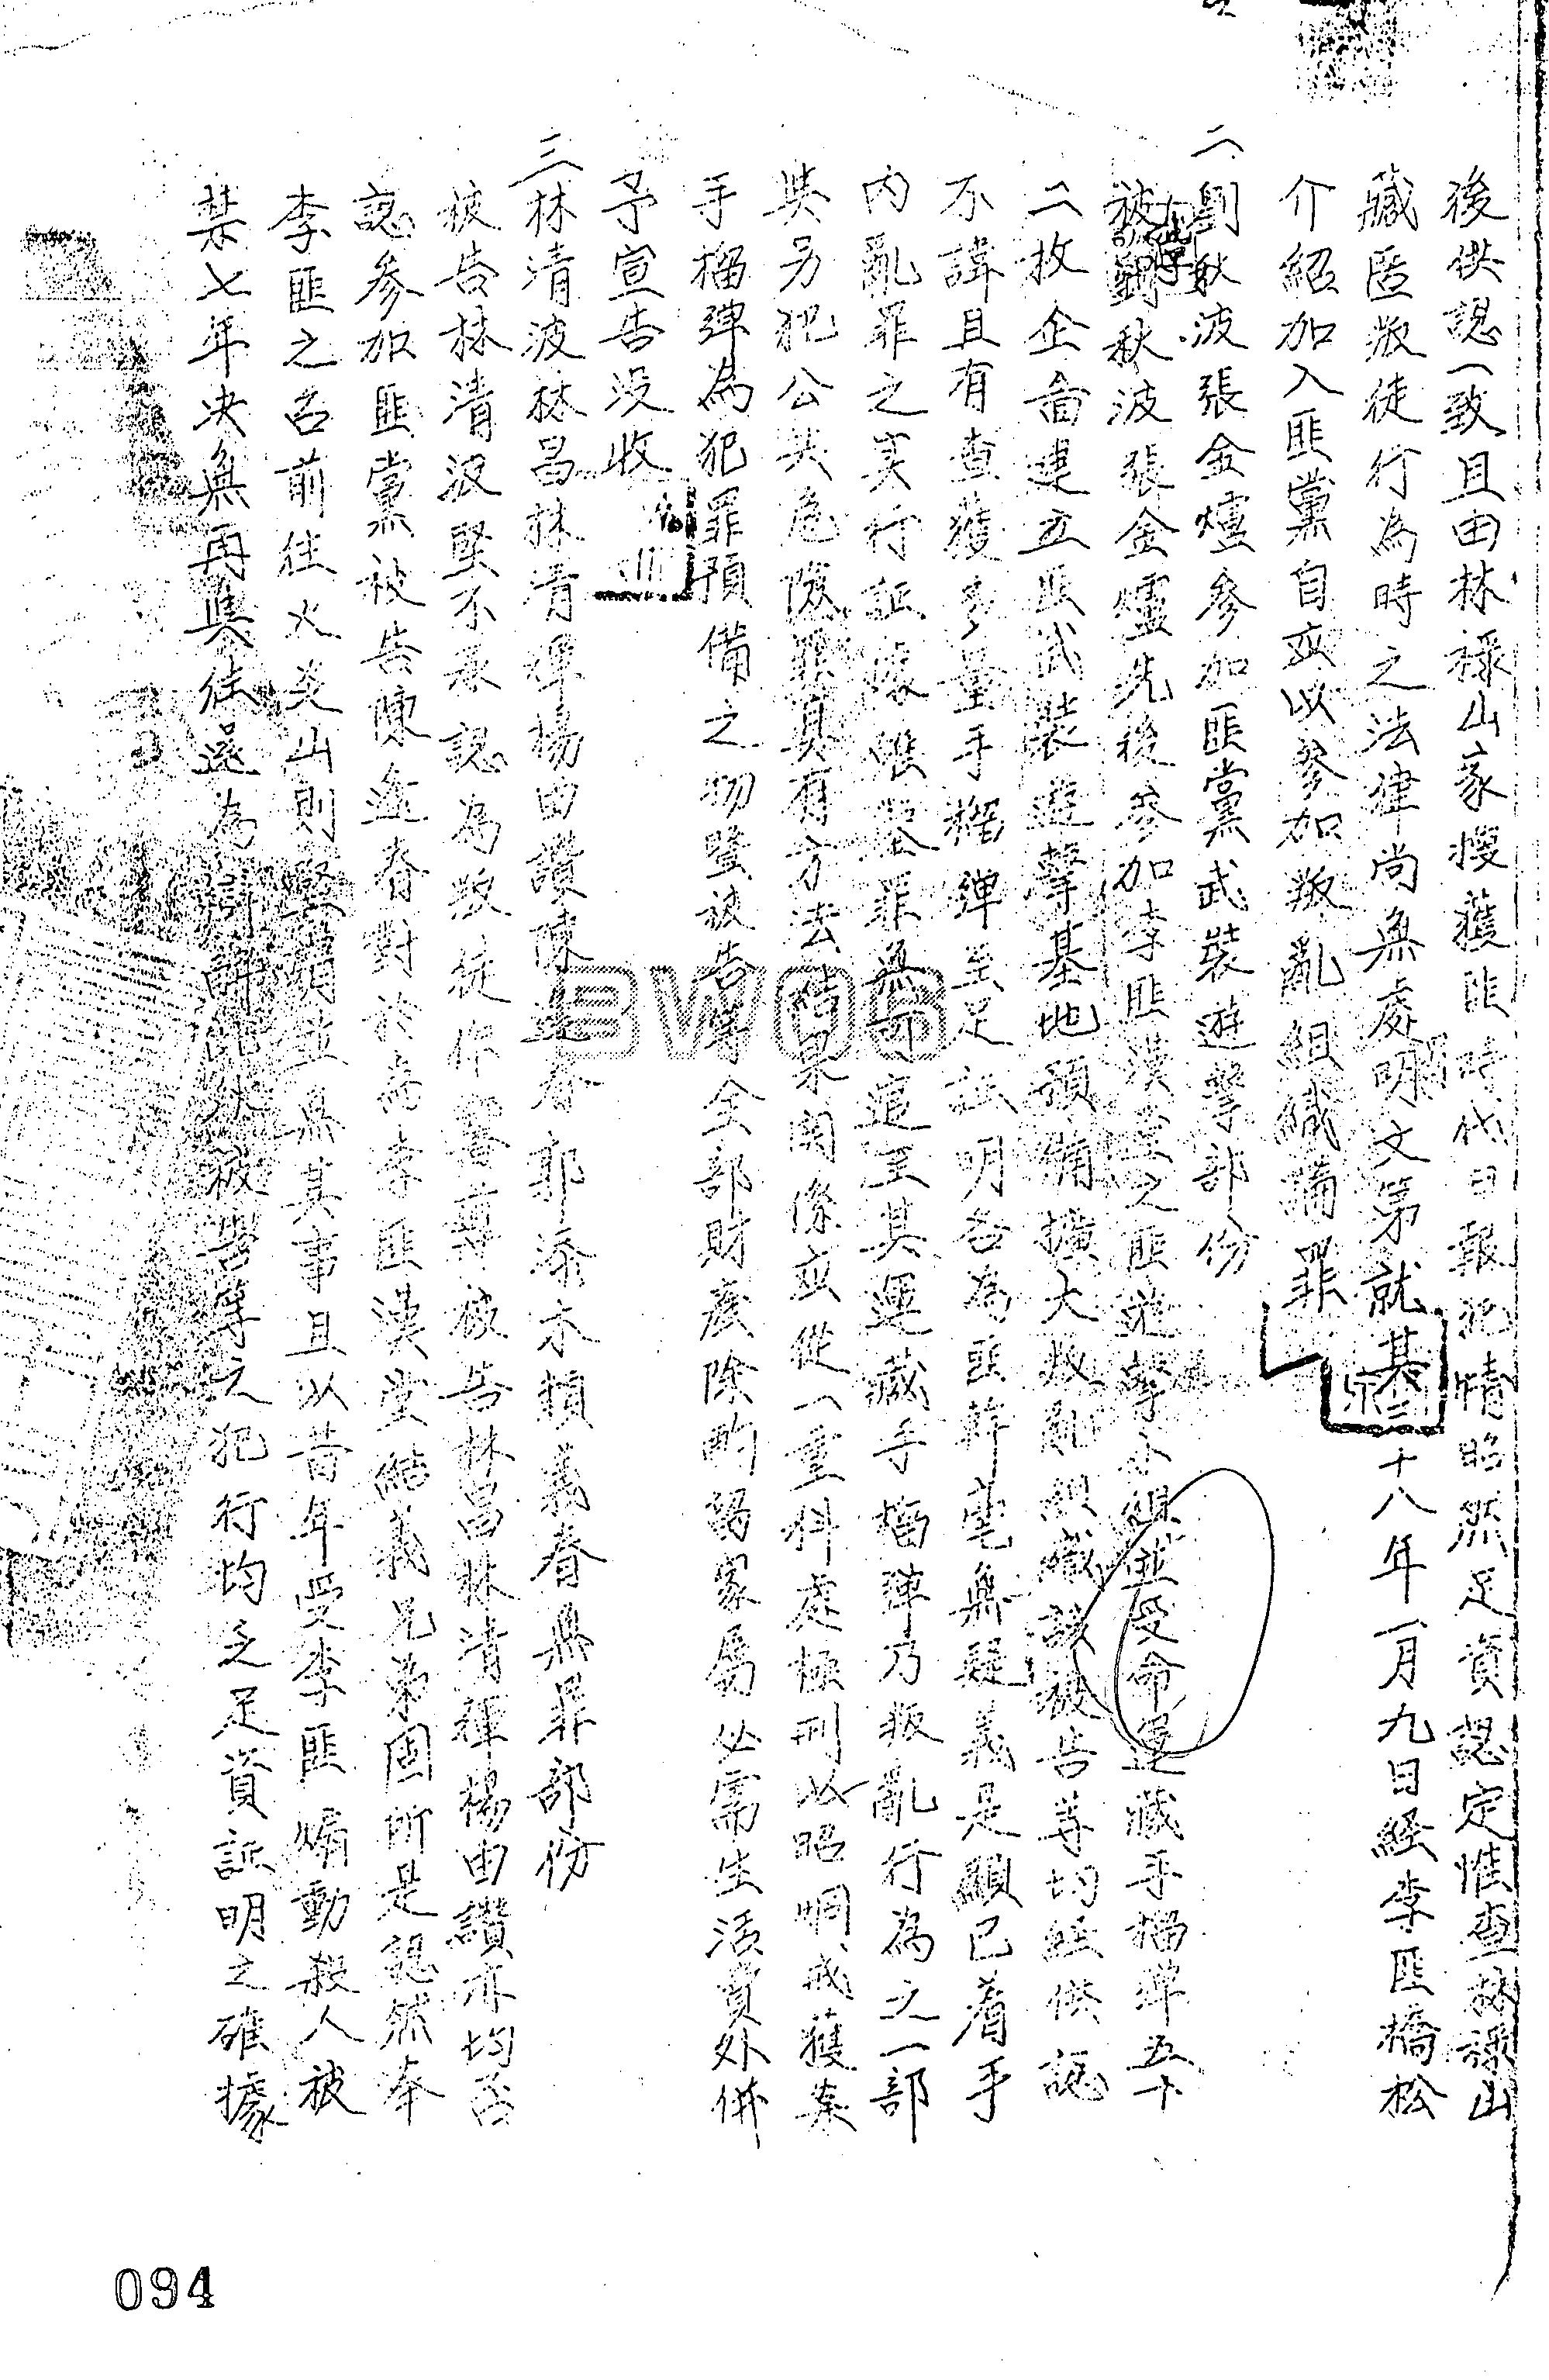 後供認一致且由林祿山家搜獲匪時代日報犯情昭然足資認定惟查林祿山
藏匿叛徒行為時之法律尚無處罰明文第就其三十八年一月九日經李匪橋松
介紹加入匪黨自應以參加叛亂組織論罪
二、劉秋波張金爐參加匪黨武裝遊擊部份
被告劉秋波張金爐先後參加李匪漢堂之匪遊擊小組並受命運藏手榴彈五十
二枚企啚建立匪武裝遊擊基地預備擴大叛亂組織該被告等均經供認
不諱且有查獲多量手榴彈至足証明各為匪幹毫無疑義是顯已着手
內亂罪之实行証據確鑿罪無可逭至其運藏手榴彈乃叛亂行為之一部
與另犯公共危險罪具有方法結果関係应從一重科處極刑以昭烱戒獲案
手榴彈為犯罪預備之物暨被告等全部財產除酌留家屬必需生活費外併
予宣告沒收
三、林清波林昌林清輝楊由讚陳進春郭添木賴義春無罪部份
被告林清波堅不承認為叛徒作警哨被告林昌林清輝楊由讚亦均否
認參加匪黨被告陳進春對於為李匪漢堂結義兄弟固所是認然奉
李匪之召前往火炎山則堅稱並無其事且以昔年受李匪煽動殺人被
禁七年决無再與往還為
被告等之犯行均乏足資証明之確據
BW06
094